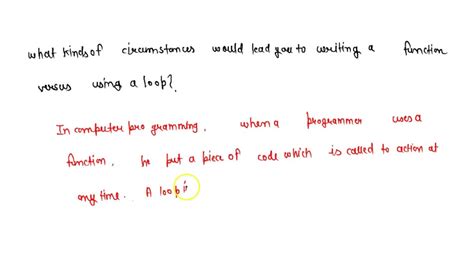 what kinds of circumstances would lead you to writing a function
versus using a loop?
In computer programming, when a programmer uses a
function, he put a piece of code which is called to action at
any time. A loop i